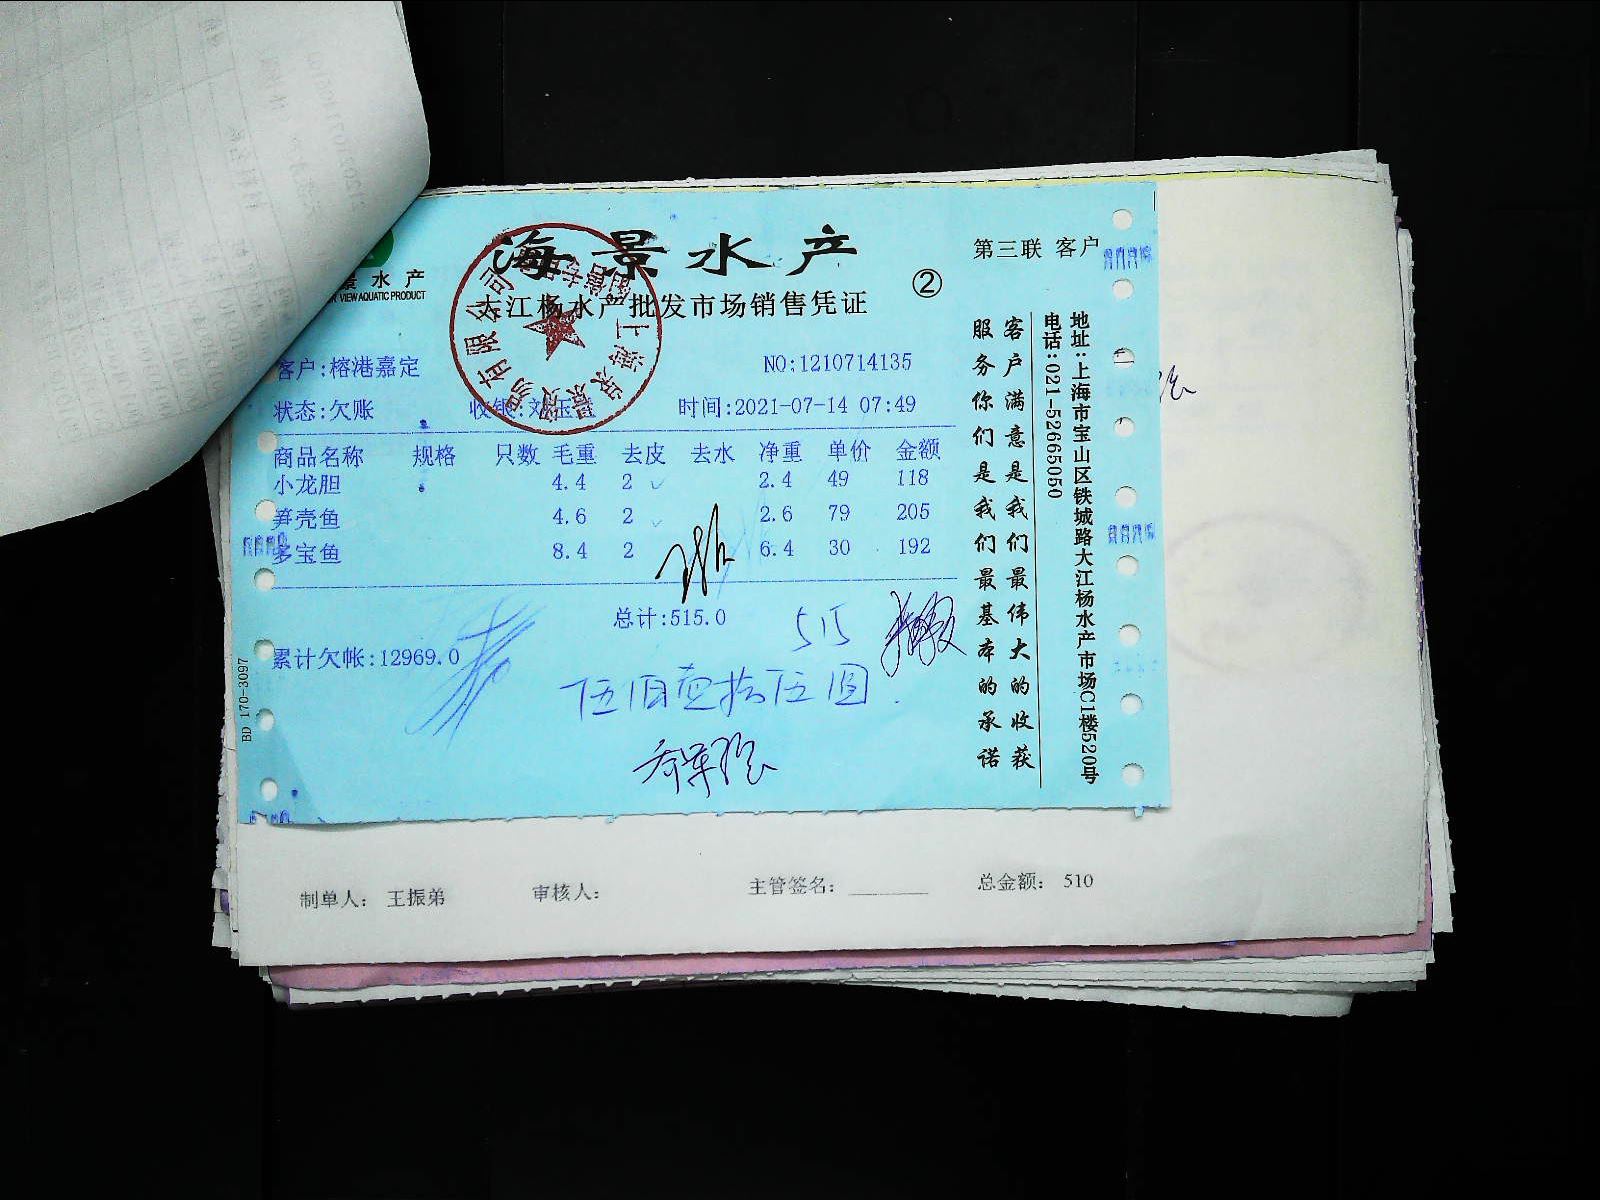 海景水产
大江杨水产批发市场销售凭证
②
第三联 客户
景水产
VIEW AQUATIC PRODUCT
客户:榕港嘉定
NO:1210714135
状态:欠账
收银:刘玉
时间:2021-07-14 07:49
商品名称 规格 只数 毛重 去皮 去水 净重 单价 金额
小龙胆 4.4 2 2.4 49 118
笋壳鱼 4.6 2 2.6 79 205
多宝鱼 8.4 2 6.4 30 192
总计:515.0
515
累计欠帐:12969.0
伍佰壹拾伍圆.
BD 170-3097
客户满意是我们最伟大的收获
服务你们是我们最基本的承诺
地址:上海市宝山区铁城路大江杨水产市场C1楼520号
电话:021-52665050
制单人: 王振弟 审核人: 主管签名: 总金额: 510